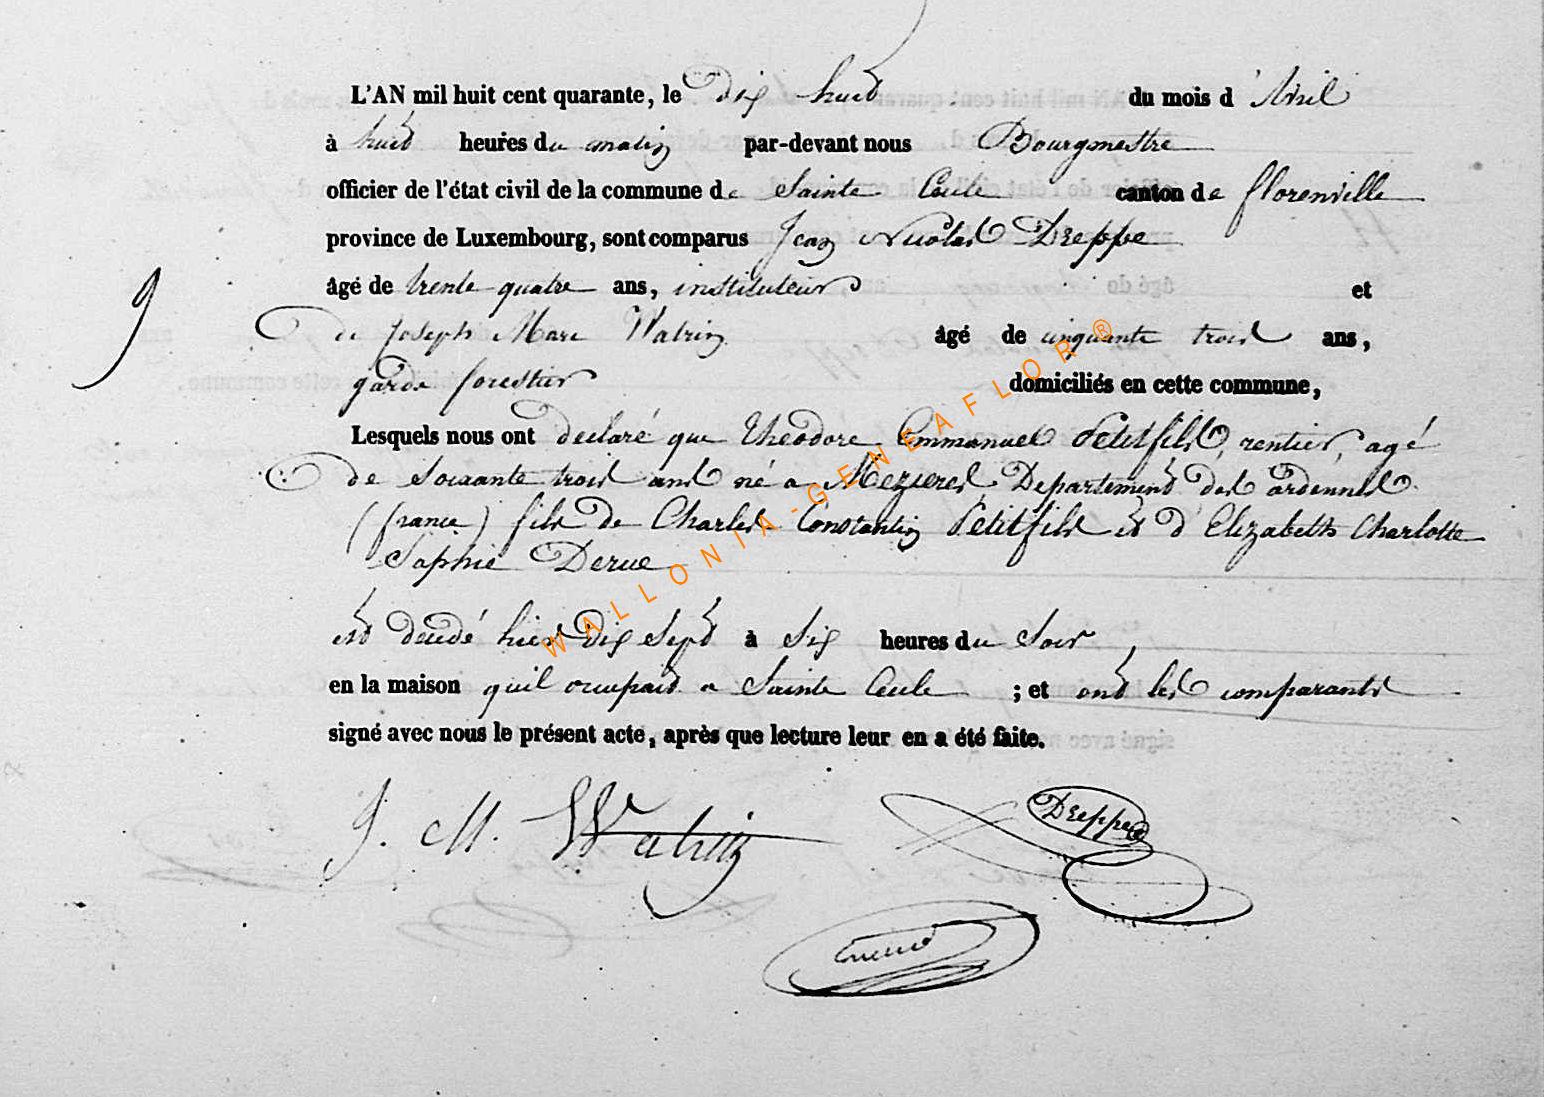 L'AN mil huit cent quarante, le dix huit du mois d'Avril
à huit heures du matin par-devant nous Bourgmestre
officier de l'état civil de la commune de Sainte Cecile canton de florenville
province de Luxembourg, sont comparus Jean Nicolas Dreppe
âgé de trente quatre ans, instituteur et
9
de Joseph Marc Watrin âgé de cinquante trois ans,
garde forestier domiciliés en cette commune,
Lesquels nous ont declaré que Theodore Emmanuel Petitfils, rentier, agé
de soixante trois ans né a Mezieres Departement des ardennes
(france) fils de Charles Constantin Petitfils et d'Elizabeth Charlotte
Sophie Derue
est decedé hier dix sept à six heures du soir
en la maison quil occupait a Sainte Cecile ; et ont les comparants
signé avec nous le présent acte, après que lecture leur en a été faite.
J. M. Watrin Dreppe
WALLONIA-GENEAFLOR®